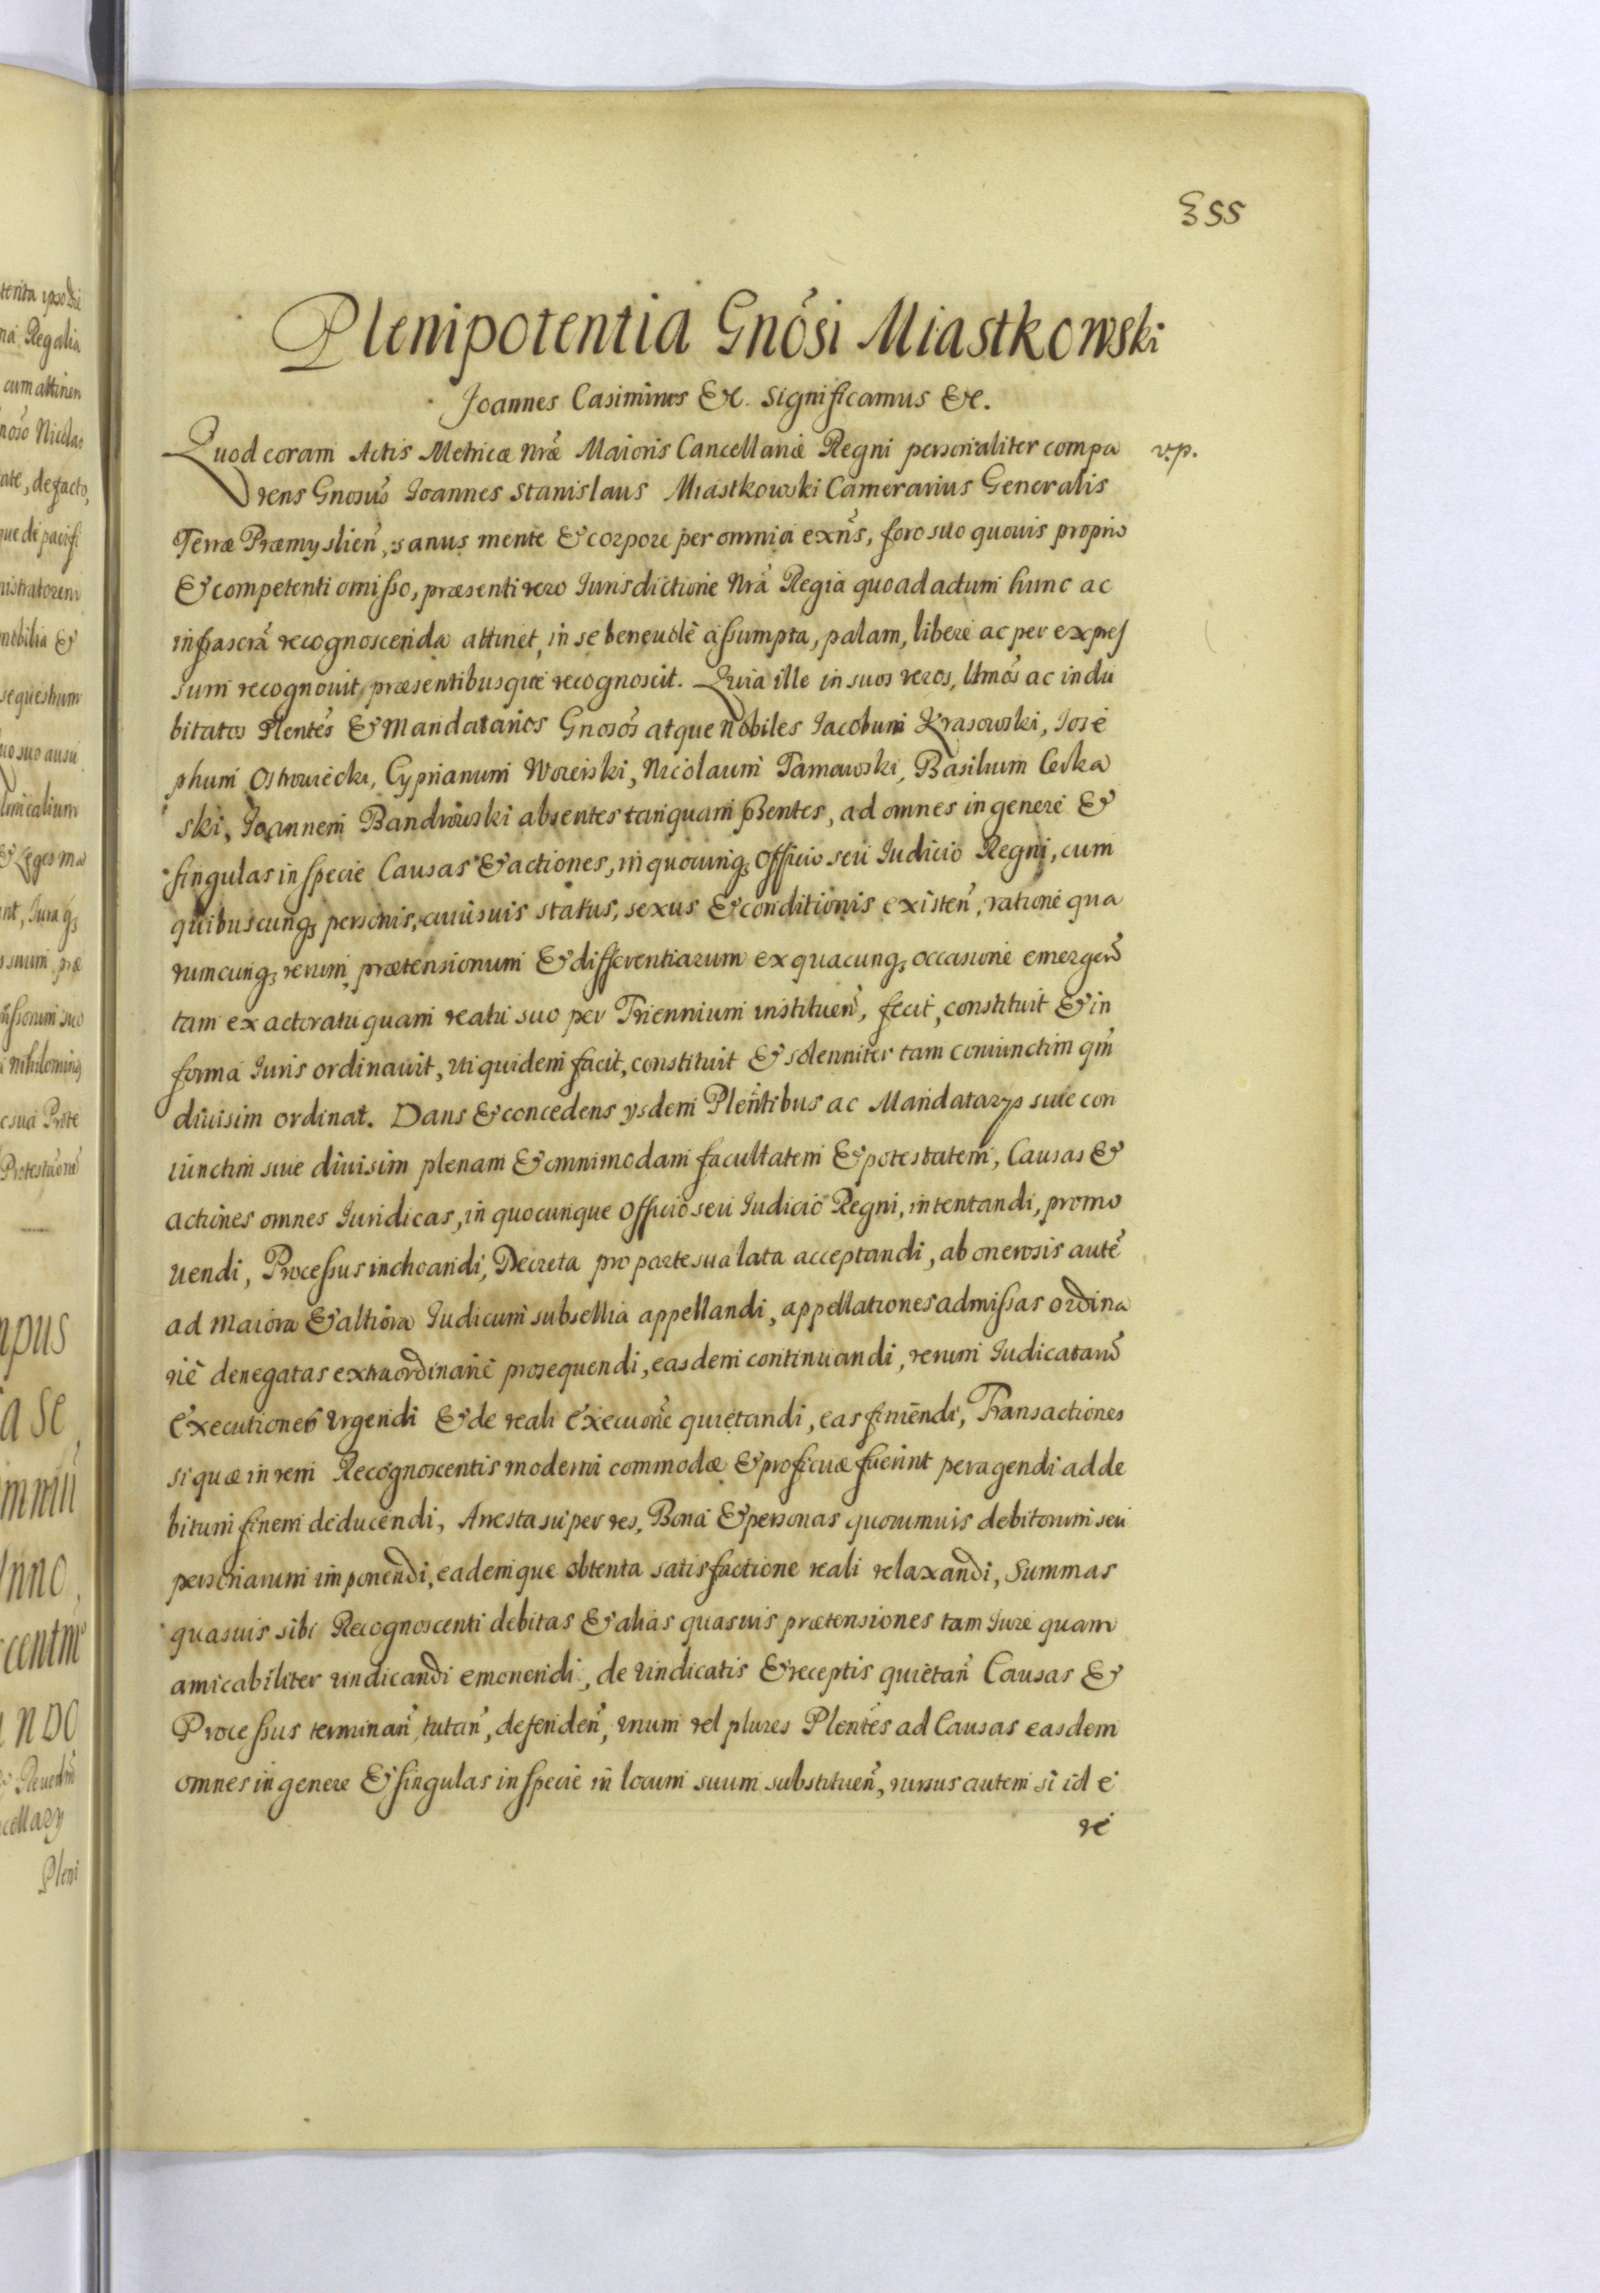 355
Plenipotentia Gnősi Miastkowski
Joannes Casimirus &c. significamus &c.
Quod coram Actis Metricæ Nræ Maioris Cancellariæ Regni personaliter compa
v.p.
rens Gnosus Joannes Stanislaus Miastkowski Camerarius Generalis
Terræ Præmyslien, sanus mente & corpore per omnia exns, foro suo quouis proprio
& competenti omisso, præsenti vero Jurisdictione Nrã Regia quoad actum hunc ac
infrascrã recognoscenda attinet, in se beneuolè assumpta, palam, liberè ac per expres
sum recognouit, præsentibusque recognoscit. Quia ille in suos veros, Ltmos ac indu
bitatos Plentes & Mandatarios Gnosos atque Nobiles Jacobum Krasowski, Jose
phum Ostrowiecki, Cyprianum Woreiski, Nicolaum Tarnowski, Basilium
ski, Joannem Bandrowski absentes tanquam pñentes, ad omnes in genere &
singulas in specie Causas & actiones, in quocunq; Officio seu Judicio Regni, cum
quibuscunq; personis, cuiusuis status, sexus & conditionis existen, ratione qua
rumcunq; rerum prætensionum & differentiarum ex quacunq; occasione emergen
tam ex actoratu quam reatu suo per Triennium instituen, fecit, constituit & in
forma Juris ordinauit, uti quidem facit, constituit & solenniter tam coniunctim qm
diuisim ordinat. Dans & concedens ysdem Plentibus ac Mandatarys suis con
iunctim siue diuisim plenam & omnimodam facultatem & potestatem, Causas &
actiones omnes Juridicas, in quocunque Officio seu Judicio Regni, intentandi, promo
uendi, Processus inchoandi, Decreta pro parte sua lata acceptandi, ab onerosis autẽ
ad maiora & altiora Judicum subsellia appellandi, appellationes admissas ordina
riè denegatas extraordinariè prosequendi, easdem continuandi, rerum Judicatarũ
Executiones Urgendi & de reali Execuone quietandi, eas finiendi, Transactiones
si quæ in rem Recognoscentis moderni commodæ & proficuæ fuerint peragendi ad de
bitum finem deducendi, Aresta super res, Bona & personas quorumuis debitorum seu
personarum imponendi, eademque obtenta satisfactione reali relaxandi, Summas
quasuis sibi Recognoscenti debitas & alias quasuis prætensiones tam Jure quam
amicabiliter vindicandi emonendi, de vindicatis & receptis quietan Causas &
Processus terminan, tutan, defenden, unum vel plures Plentes ad Causas easdem
omnes in genere & singulas in specie in locum suum substituen, rursus autem si id e
re